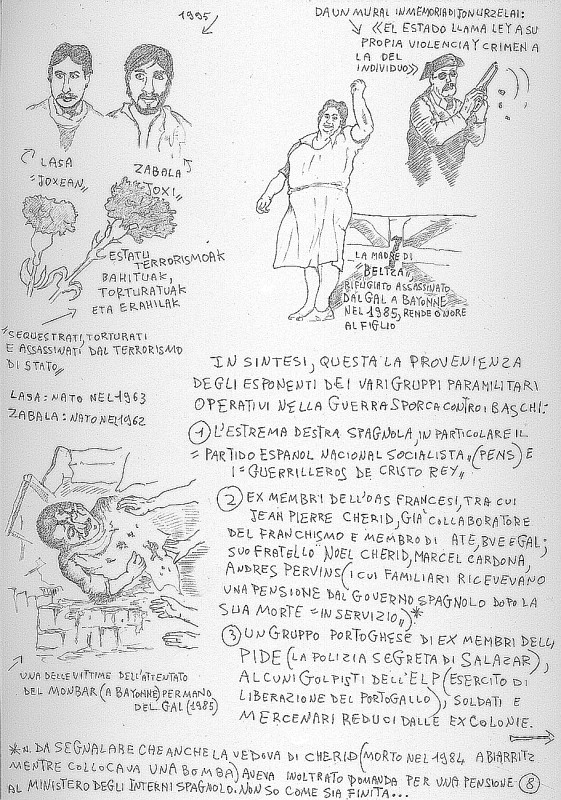 1995
DA UN MURAL IN MEMORIA DI JON URZELAI:
«EL ESTADO LLAMA LEY A SU
PROPIA VIOLENCIA Y CRIMEN A
LA DEL
INDIVIDUO»
LASA
"JOXEAN"
ZABALA
"JOXI"
ESTATU
TERRORISMOAK
BAHITUAK,
TORTURATUAK
ETA ERAHILAK
"SEQUESTRATI, TORTURATI
E ASSASSINATI DAL TERRORISMO
DI STATO"
LASA: NATO NEL 1963
ZABALA: NATO NEL 1962
LA MADRE DI
"BELTZA"
RIFUGIATO ASSASSINATO
DAL GAL A BAYONNE
NEL 1985, RENDE ONORE
AL FIGLIO
IN SINTESI, QUESTA LA PROVENIENZA
DEGLI ESPONENTI DEI VARI GRUPPI PARAMILITARI
OPERATIVI NELLA GUERRA SPORCA CONTRO I BASCHI:
1 L'ESTREMA DESTRA SPAGNOLA, IN PARTICOLARE IL
"PARTIDO ESPANOL NACIONAL SOCIALISTA" (PENS) E
I "GUERRILLEROS DE CRISTO REY"
2 EX MEMBRI DELL'OAS FRANCESI, TRA CUI
JEAN PIERRE CHERID, GIA' COLLABORATORE
DEL FRANCHISMO E MEMBRO DI ATE, BVE E GAL;
SUO FRATELLO NOEL CHERID, MARCEL CARDONA,
ANDRES PERVINS (I CUI FAMILIARI RICEVEVANO
UNA PENSIONE DAL GOVERNO SPAGNOLO DOPO LA
SUA MORTE "IN SERVIZIO")*
3 UN GRUPPO PORTOGHESE DI EX MEMBRI DELLA
PIDE (LA POLIZIA SEGRETA DI SALAZAR),
ALCUNI GOLPISTI DELL'ELP (ESERCITO DI
LIBERAZIONE DEL PORTOGALLO), SOLDATI E
MERCENARI REDUCI DALLE EX COLONIE.
UNA DELLE VITTIME DELL'ATTENTATO
DEL MONBAR (A BAYONNE) PER MANO
DEL GAL (1985)
*N. DA SEGNALARE CHE ANCHE LA VEDOVA DI CHERID (MORTO NEL 1984 A BIARRITZ
MENTRE COLLOCAVA UNA BOMBA) AVEVA INOLTRATO DOMANDA PER UNA PENSIONE
AL MINISTERO DEGLI INTERNI SPAGNOLO. NON SO COME SIA FINITA...
8